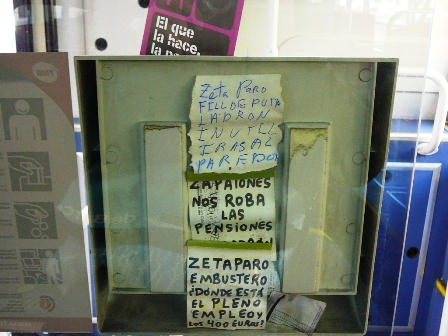 El que
la hace,
la pa
Zeta Paro
FILL DE PUTA
LADRON
INUTIL
IRAS AL
PAREDON
ZAPATONES
NOS ROBA
LAS
PENSIONES
ZETAPARO
EMBUSTERO
¿DONDE ESTÁ
EL PLENO
EMPLEO Y
LOS 400 EUROS?